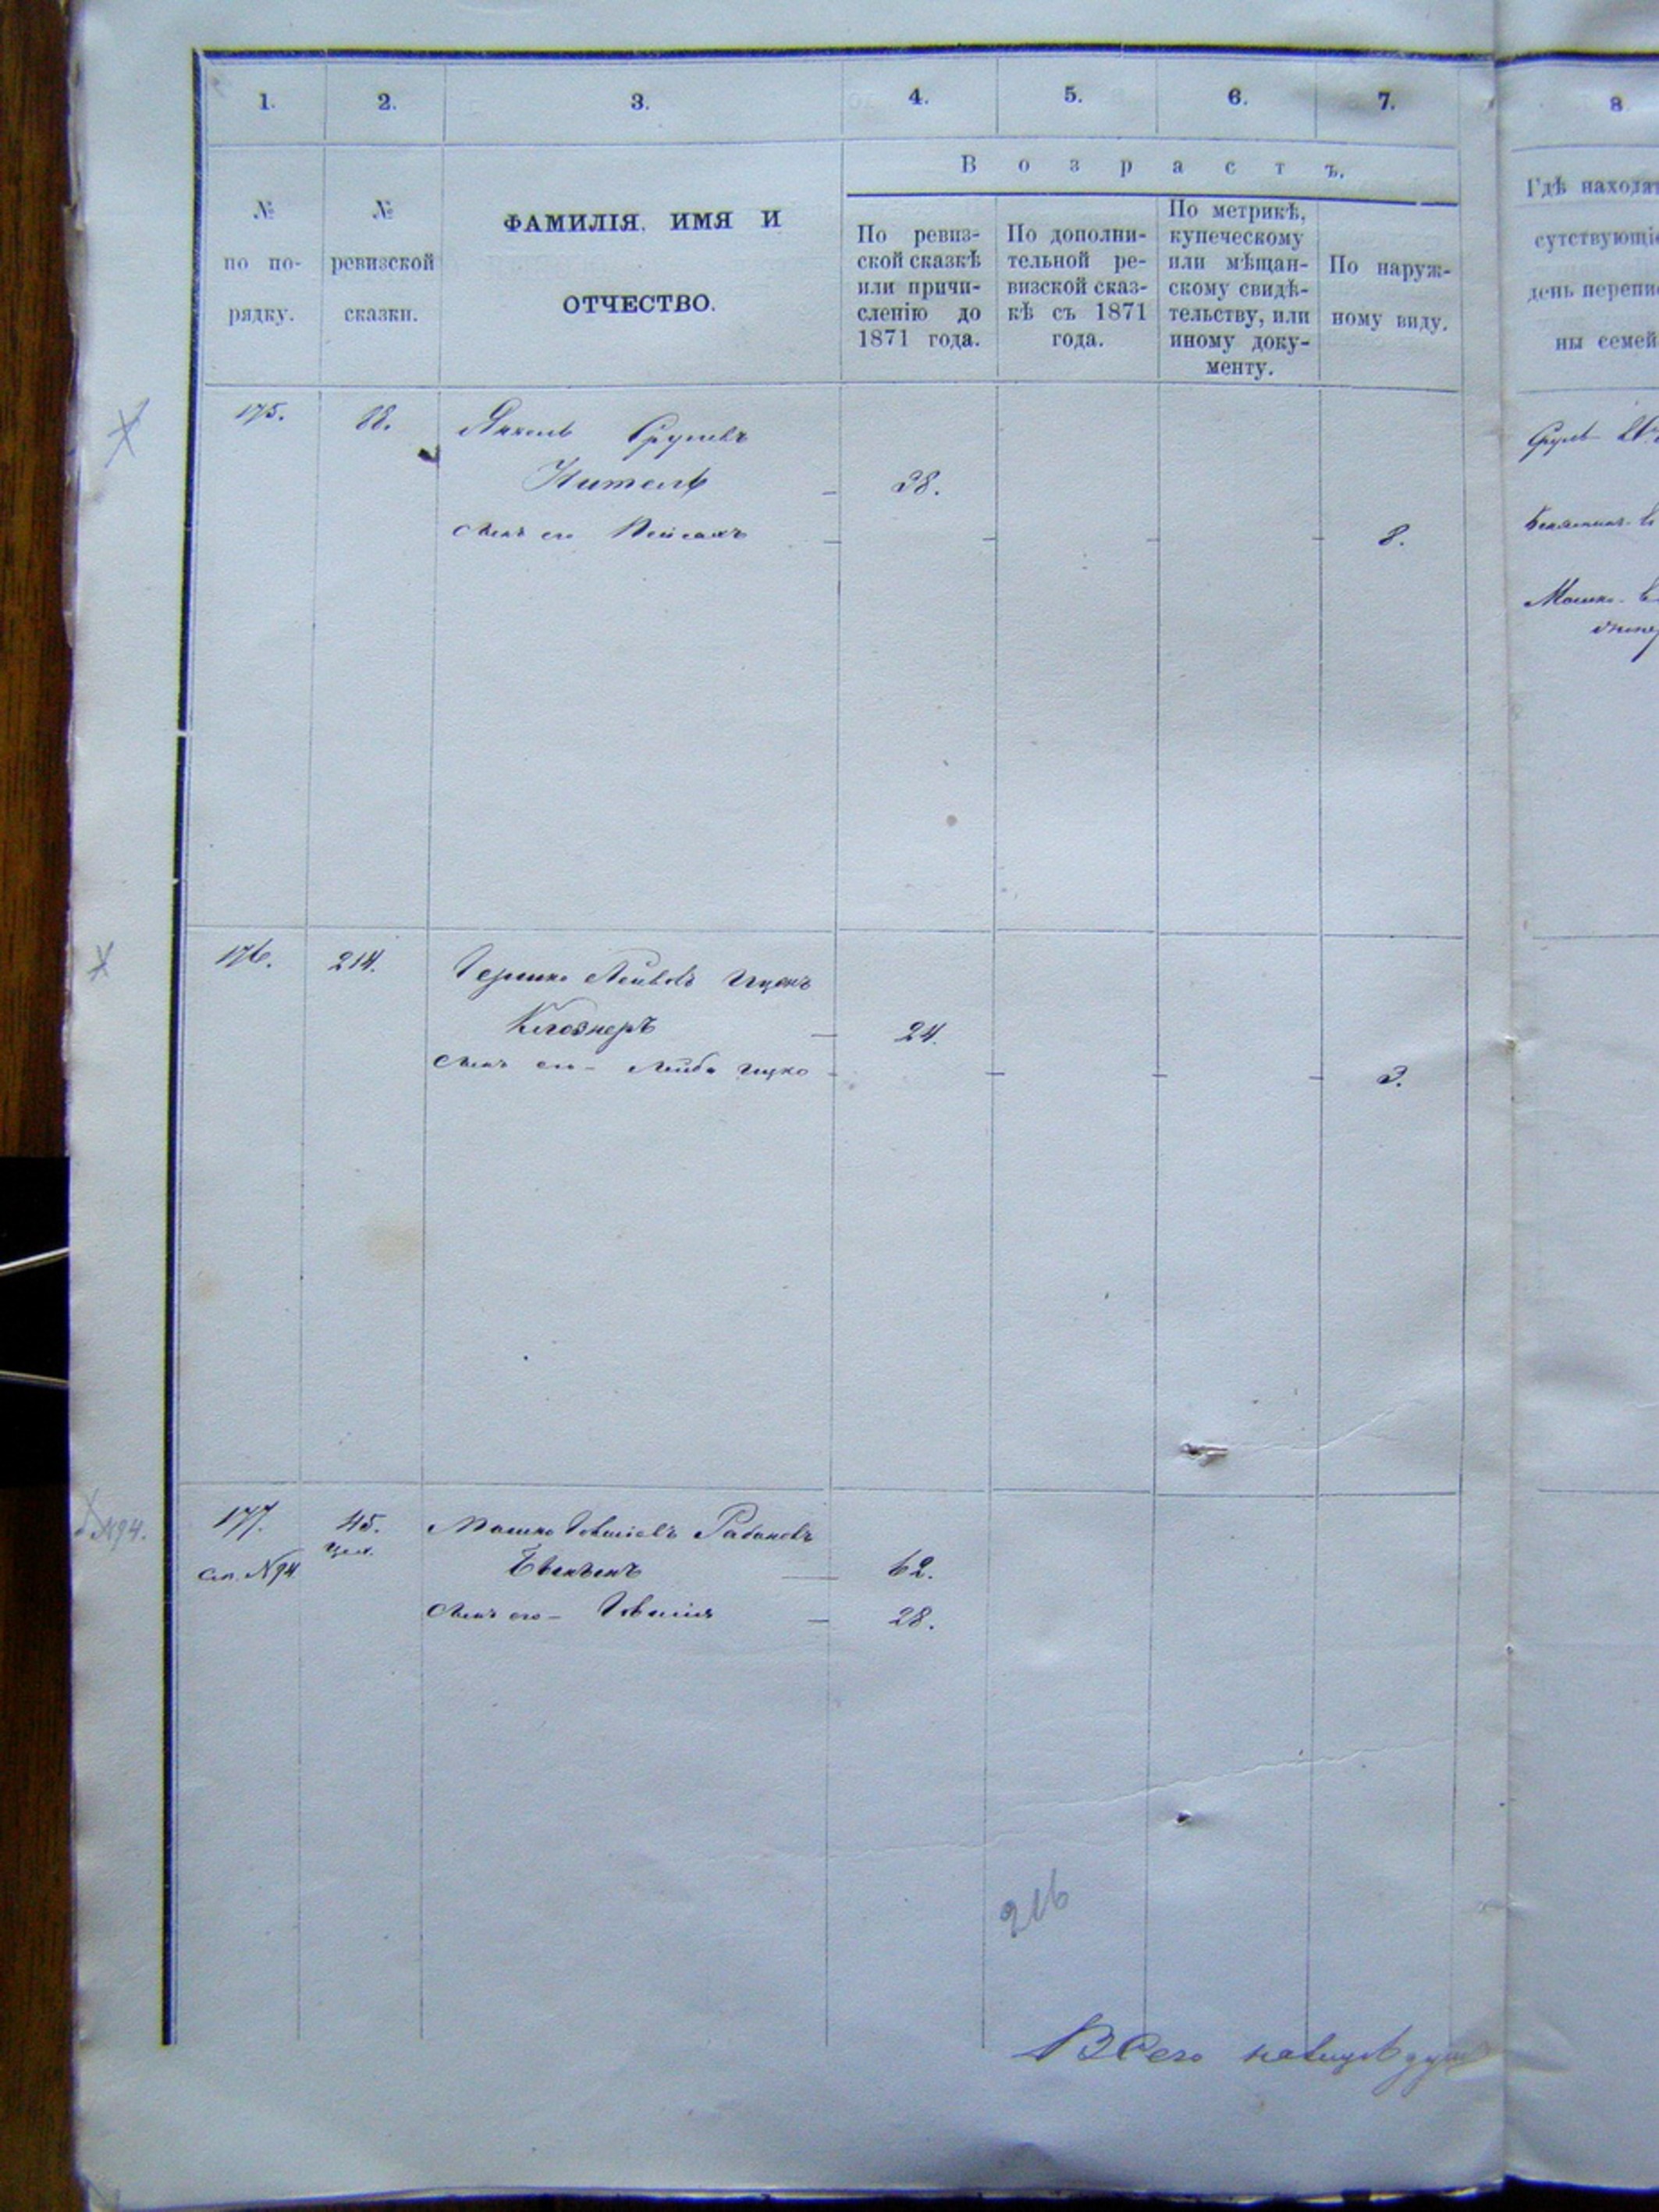 1. 2. 3. 4. 5. 6. 7. 8
Возрастъ.
№ по по-рядку.
№ ревизской сказки.
ФАМИЛІЯ, ИМЯ И
ОТЧЕСТВО.
По ревиз-
ской сказкѣ
или причи-
сленію до
1871 года.
По дополни-
тельной ре-
визской сказ-
кѣ съ 1871
года.
По метрикѣ,
купеческому
или мѣщан-
скому свидѣ-
тельству, или
иному доку-
менту.
По наруж-
ному виду.
Гдѣ находят
сутствующіе
день перепис
ны семей
175. 88. Янкель Срулевъ
Нитель 38.
Сынъ его Пейсахъ 8.
Сруль
Мошко
176. 214. Гершко Лейбовъ Ицковъ
Клезмеръ 24.
Сынъ его - Лейба Ицко 3.
№94. 177. 45. Мошко Іовшіевъ
62.
см. №94
Сынъ его - Іовшія 28.
216
Всего налицо душ